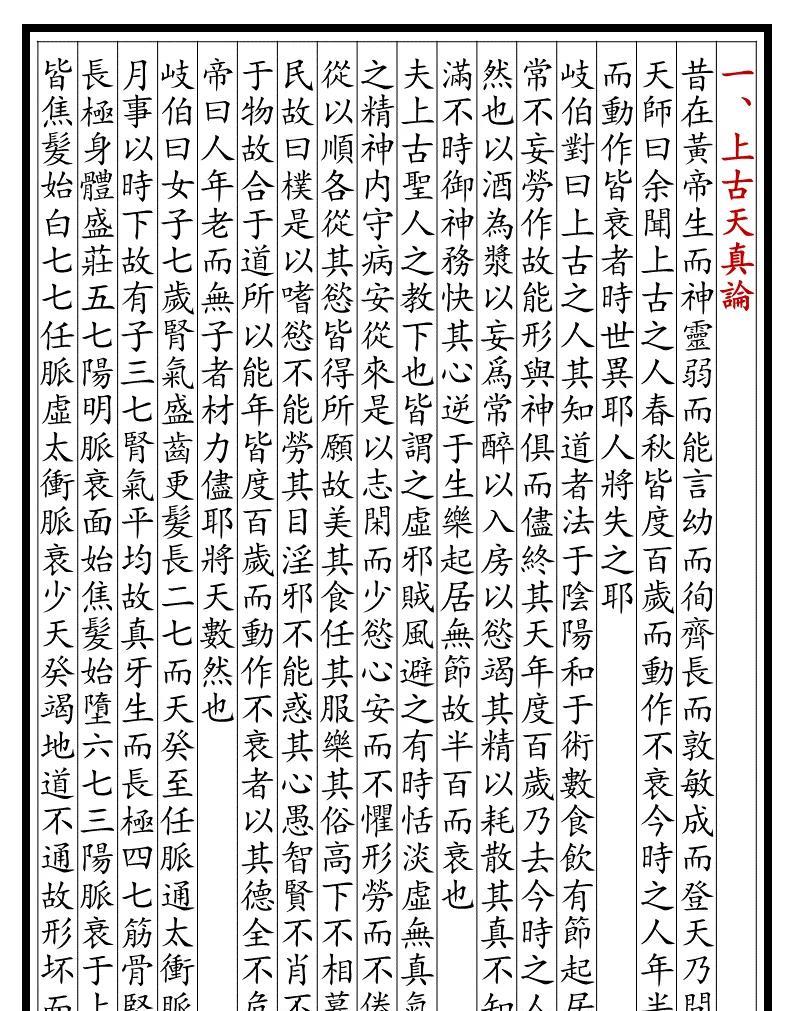 一、上古天真論
昔在黃帝生而神靈弱而能言幼而徇齊長而敦敏成而登天乃問
天師曰余聞上古之人春秋皆度百歲而動作不衰今時之人年半
而動作皆衰者時世異耶人將失之耶
岐伯對曰上古之人其知道者法于陰陽和于術數食飲有節起居
常不妄勞作故能形與神俱而儘終其天年度百歲乃去今時之人
然也以酒為漿以妄爲常醉以入房以慾竭其精以耗散其真不知
滿不時御神務快其心逆于生樂起居無節故半百而衰也
夫上古聖人之教下也皆謂之虛邪賊風避之有時恬淡虛無真氣
之精神內守病安從來是以志閑而少慾心安而不懼形勞而不倦
從以順各從其慾皆得所願故美其食任其服樂其俗高下不相慕
民故曰樸是以嗜慾不能勞其目淫邪不能惑其心愚智賢不肖不
于物故合于道所以能年皆度百歲而動作不衰者以其德全不危
帝曰人年老而無子者材力儘耶將天數然也
岐伯曰女子七歲腎氣盛齒更髮長二七而天癸至任脈通太衝脈
月事以時下故有子三七腎氣平均故真牙生而長極四七筋骨堅
長極身體盛莊五七陽明脈衰面始焦髮始墮六七三陽脈衰于上
皆焦髮始白七七任脈虛太衝脈衰少天癸竭地道不通故形坏而